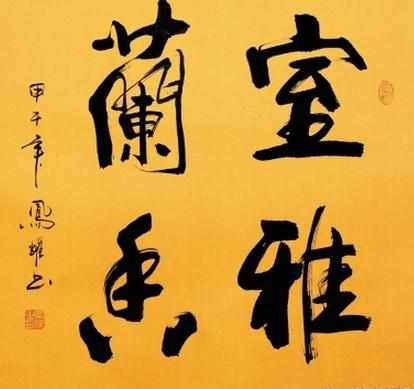 室雅
蘭香
甲午年鳳雄书